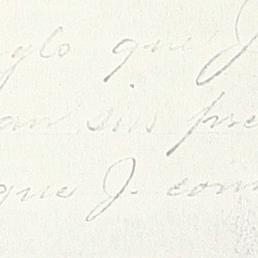 glo que J
an sin pre
que J. com